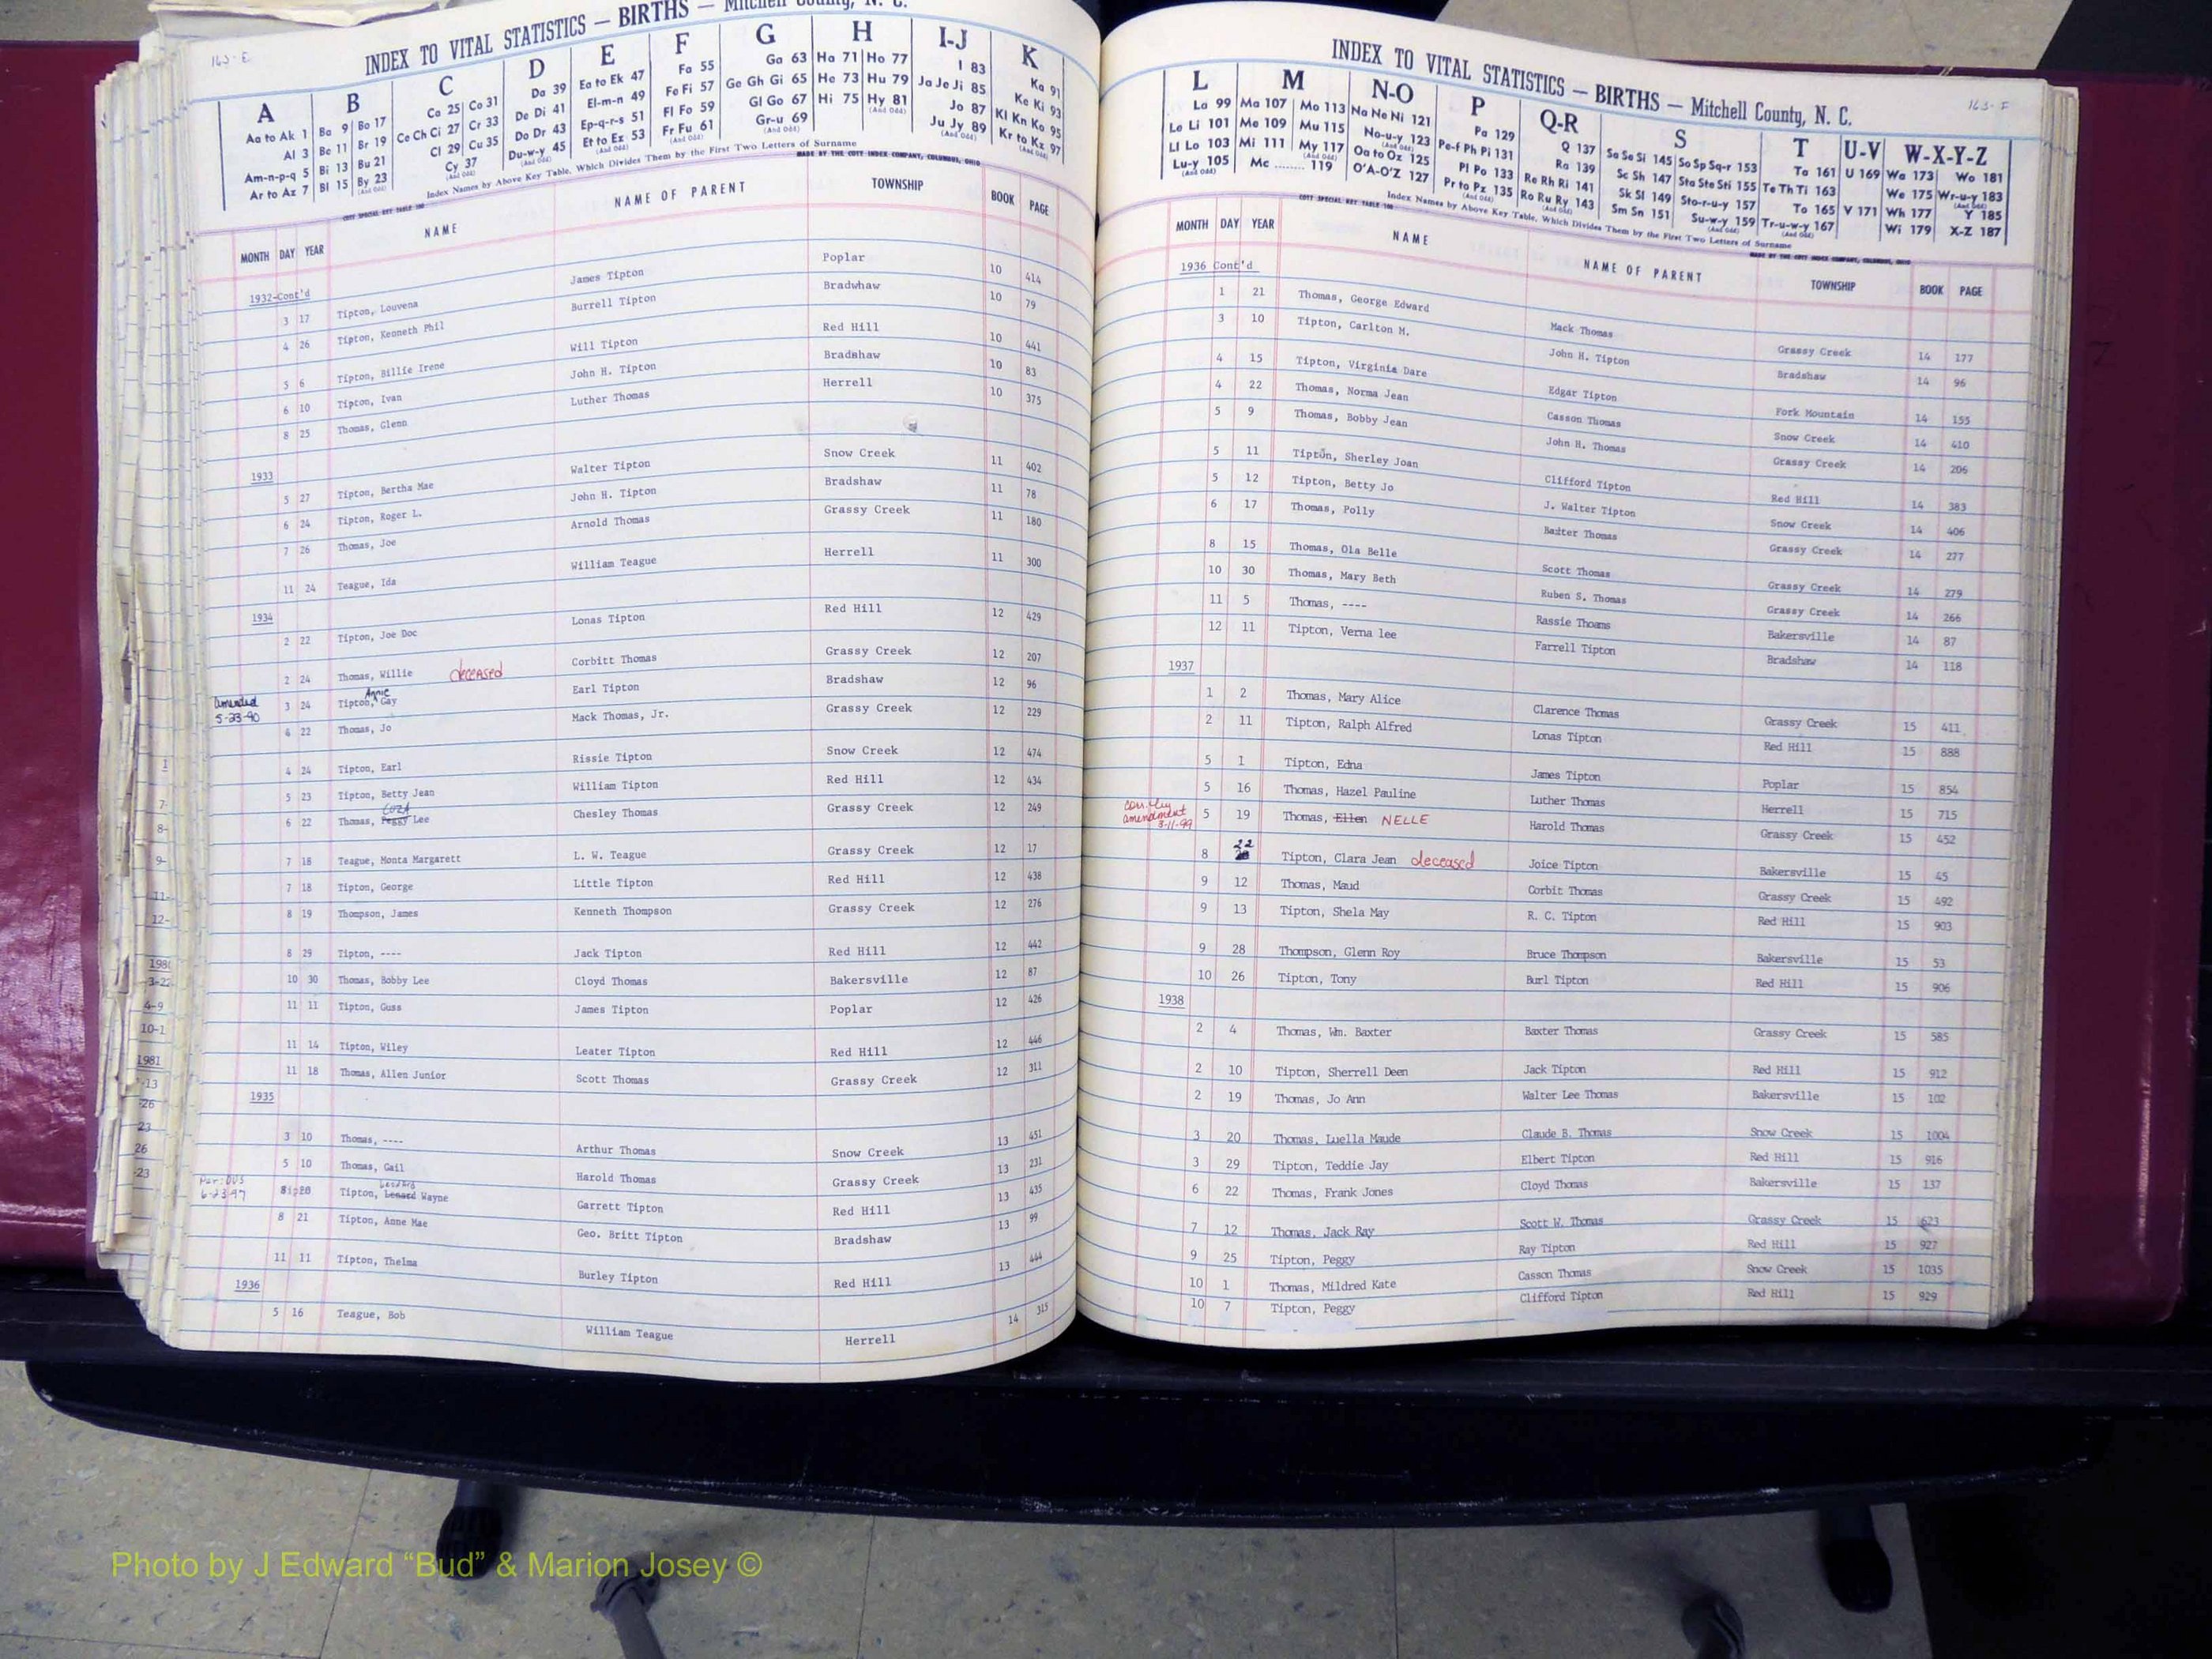 163-E
INDEX TO VITAL STATISTICS — BIRTHS — Mitchell County, N. C.
A B C D E F G H I-J K
Aa to Ak 1 Al 3 Am-n-p-q 5 Ar to Az 7
Ba 9 Be 11 Bi 13 Bl 15 Bo 17 Br 19 Bu 21 By 23 (And Odd)
Ca 25 Ce Ch Ci 27 Cl 29 Co 31 Cr 33 Cu 35 Cy 37 (And Odd)
Da 39 De Di 41 Do Dr 43 Du-w-y 45 (And Odd)
Ea to Ek 47 El-m-n 49 Ep-q-r-s 51 Et to Ez 53 (And Odd)
Fa 55 Fe Fi 57 Fl Fo 59 Fr Fu 61 (And Odd)
Ga 63 Ge Gh Gi 65 Gl Go 67 Gr-u 69 (And Odd)
Ha 71 He 73 Hi 75 Ho 77 Hu 79 Hy 81 (And Odd)
I 83 Ja Je Ji 85 Jo 87 Ju Jy 89 (And Odd)
Ka 91 Ke Ki 93 Kl Kn Ko 95 Kr to Kz 97
Index Names by Above Key Table, Which Divides Them by the First Two Letters of Surname
MADE BY THE COTT INDEX COMPANY, COLUMBUS, OHIO
MONTH DAY YEAR NAME NAME OF PARENT TOWNSHIP BOOK PAGE
1932-Cont'd
3 17 Tipton, Louvena James Tipton Poplar 10 414
4 26 Tipton, Kenneth Phil Burrell Tipton Bradwhaw 10 79
5 6 Tipton, Billie Irene Will Tipton Red Hill 10 441
6 10 Tipton, Ivan John H. Tipton Bradshaw 10 83
8 25 Thomas, Glenn Luther Thomas Herrell 10 375
1933
5 27 Tipton, Bertha Mae Walter Tipton Snow Creek 11 402
6 24 Tipton, Roger L. John H. Tipton Bradshaw 11 78
7 26 Thomas, Joe Arnold Thomas Grassy Creek 11 180
11 24 Teague, Ida William Teague Herrell 11 300
1934
2 22 Tipton, Joe Doc Lonas Tipton Red Hill 12 429
2 24 Thomas, Willie deceased Corbitt Thomas Grassy Creek 12 207
amended 5-23-90 3 24 Tipton, Annie Gay Earl Tipton Bradshaw 12 96
4 22 Thomas, Jo Mack Thomas, Jr. Grassy Creek 12 229
4 24 Tipton, Earl Rissie Tipton Snow Creek 12 474
5 23 Tipton, Betty Jean William Tipton Red Hill 12 434
6 22 Thomas, Peggy Lee Chesley Thomas Grassy Creek 12 249
7 18 Teague, Monta Margarett L. W. Teague Grassy Creek 12 17
7 18 Tipton, George Little Tipton Red Hill 12 438
8 19 Thompson, James Kenneth Thompson Grassy Creek 12 276
8 29 Tipton, ---- Jack Tipton Red Hill 12 442
10 30 Thomas, Bobby Lee Cloyd Thomas Bakersville 12 87
11 11 Tipton, Guss James Tipton Poplar 12 426
11 14 Tipton, Wiley Leater Tipton Red Hill 12 446
11 18 Thomas, Allen Junior Scott Thomas Grassy Creek 12 311
1935
3 10 Thomas, ---- Arthur Thomas Snow Creek 13 451
5 10 Thomas, Gail Harold Thomas Grassy Creek 13 231
6-23-97 Tipton, Lenard Wayne Garrett Tipton Red Hill 13 435
8 21 Tipton, Anne Mae Geo. Britt Tipton Bradshaw 13 99
11 11 Tipton, Thelma Burley Tipton Red Hill 13 444
1936
5 16 Teague, Bob William Teague Herrell 14 315
163-F
INDEX TO VITAL STATISTICS — BIRTHS — Mitchell County, N. C.
L M N-O P Q-R S T U-V W-X-Y-Z
La 99 Le Li 101 Ll Lo 103 Lu-y 105 (And Odd)
Ma 107 Me 109 Mi 111 Mc ........ 119 Mo 113 Mu 115 My 117 (And Odd)
Na Ne Ni 121 No-u-y 123 (And Odd) Oa to Oz 125 O'A-O'Z 127
Pa 129 Pe-f Ph Pi 131 Pl Po 133 Pr to Pz 135
Q 137 Ra 139 Re Rh Ri 141 Ro Ru Ry 143 (And Odd)
Sa Se Si 145 Sc Sh 147 Sk Sl 149 Sm Sn 151 So Sp Sq-r 153 Sta Ste Sti 155 Sto-r-u-y 157 Su-w-y 159 (And Odd)
Ta 161 Te Th Ti 163 To 165 Tr-u-w-y 167 (And Odd)
U 169 V 171
Wa 173 We 175 Wh 177 Wi 179 Wo 181 Wr-u-y 183 (And Odd) Y 185 X-Z 187
COTT SPECIAL KEY TABLE 100
Index Names by Above Key Table, Which Divides Them by the First Two Letters of Surname
MADE BY THE COTT INDEX COMPANY, COLUMBUS, OHIO
MONTH DAY YEAR NAME NAME OF PARENT TOWNSHIP BOOK PAGE
1936 Cont'd
1 21 Thomas, George Edward Mack Thomas Grassy Creek 14 177
3 10 Tipton, Carlton M. John H. Tipton Bradshaw 14 96
4 15 Tipton, Virginia Dare Edgar Tipton Fork Mountain 14 155
4 22 Thomas, Norma Jean Casson Thomas Snow Creek 14 410
5 9 Thomas, Bobby Jean John H. Thomas Grassy Creek 14 206
5 11 Tipton, Sherley Joan Clifford Tipton Red Hill 14 383
5 12 Tipton, Betty Jo J. Walter Tipton Snow Creek 14 406
6 17 Thomas, Polly Baxter Thomas Grassy Creek 14 277
8 15 Thomas, Ola Belle Scott Thomas Grassy Creek 14 279
10 30 Thomas, Mary Beth Ruben S. Thomas Grassy Creek 14 266
11 5 Thomas, ---- Rassie Thoams Bakersville 14 87
12 11 Tipton, Verna lee Farrell Tipton Bradshaw 14 118
1937
1 2 Thomas, Mary Alice Clarence Thomas Grassy Creek 15 411
2 11 Tipton, Ralph Alfred Lonas Tipton Red Hill 15 888
5 1 Tipton, Edna James Tipton Poplar 15 854
5 16 Thomas, Hazel Pauline Luther Thomas Herrell 15 715
amendment 3-11-99 5 19 Thomas, Ellen NELLE Harold Thomas Grassy Creek 15 452
8 22 Tipton, Clara Jean deceased Joice Tipton Bakersville 15 45
9 12 Thomas, Maud Corbit Thomas Grassy Creek 15 492
9 13 Tipton, Shela May R. C. Tipton Red Hill 15 903
9 28 Thompson, Glenn Roy Bruce Thompson Bakersville 15 53
10 26 Tipton, Tony Burl Tipton Red Hill 15 906
1938
2 4 Thomas, Wm. Baxter Baxter Thomas Grassy Creek 15 585
2 10 Tipton, Sherrell Deen Jack Tipton Red Hill 15 912
2 19 Thomas, Jo Ann Walter Lee Thomas Bakersville 15 102
3 20 Thomas, Luella Maude Claude B. Thomas Snow Creek 15 1004
3 29 Tipton, Teddie Jay Elbert Tipton Red Hill 15 916
6 22 Thomas, Frank Jones Cloyd Thomas Bakersville 15 137
7 12 Thomas, Jack Ray Scott W. Thomas Grassy Creek 15 623
9 25 Tipton, Peggy Ray Tipton Red Hill 15 927
10 1 Thomas, Mildred Kate Casson Thomas Snow Creek 15 1035
10 7 Tipton, Peggy Clifford Tipton Red Hill 15 929
Photo by J Edward “Bud” & Marion Josey ©